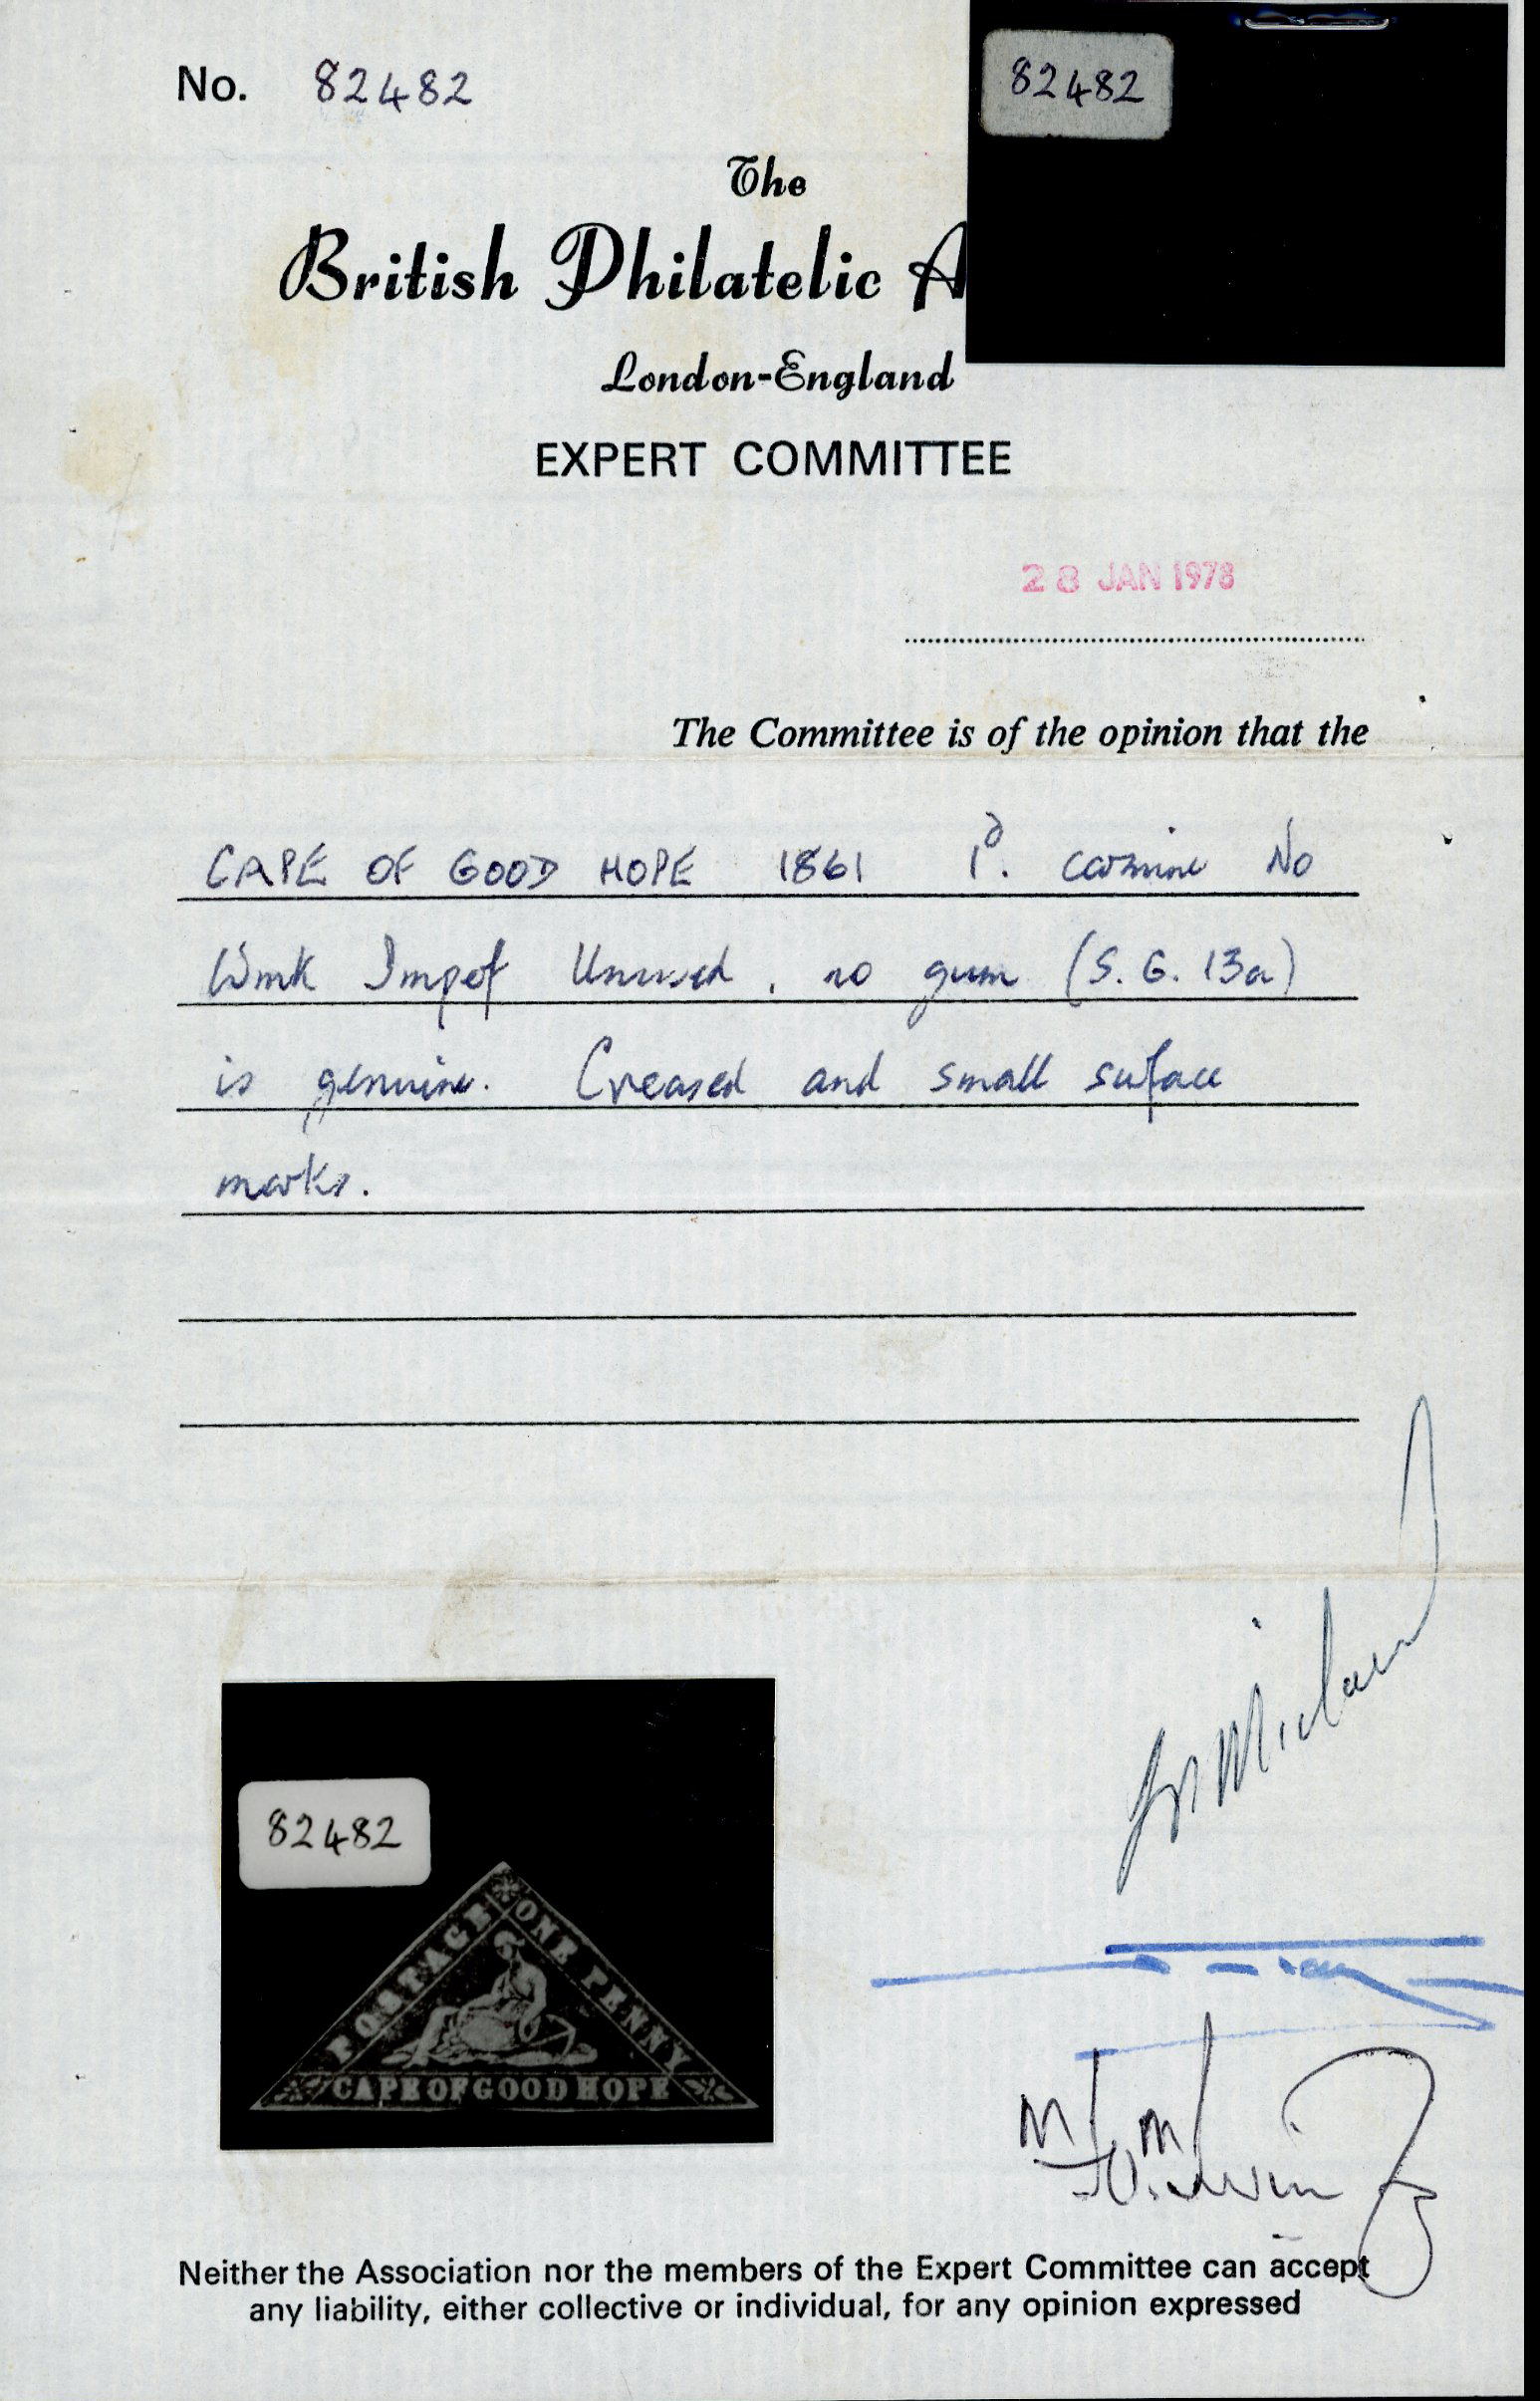 No. 82482
82482
The
British Philatelic A
London-England
EXPERT COMMITTEE
28 JAN 1978
The Committee is of the opinion that the
CAPE OF GOOD HOPE 1861 1d. carmine No
Wmk Impef Unused, no gum (S.G. 13a)
is genuine. Creased and small surface
marks.
82482
POSTAGE ONE PENNY
CAPE OF GOOD HOPE
Neither the Association nor the members of the Expert Committee can accept
any liability, either collective or individual, for any opinion expressed